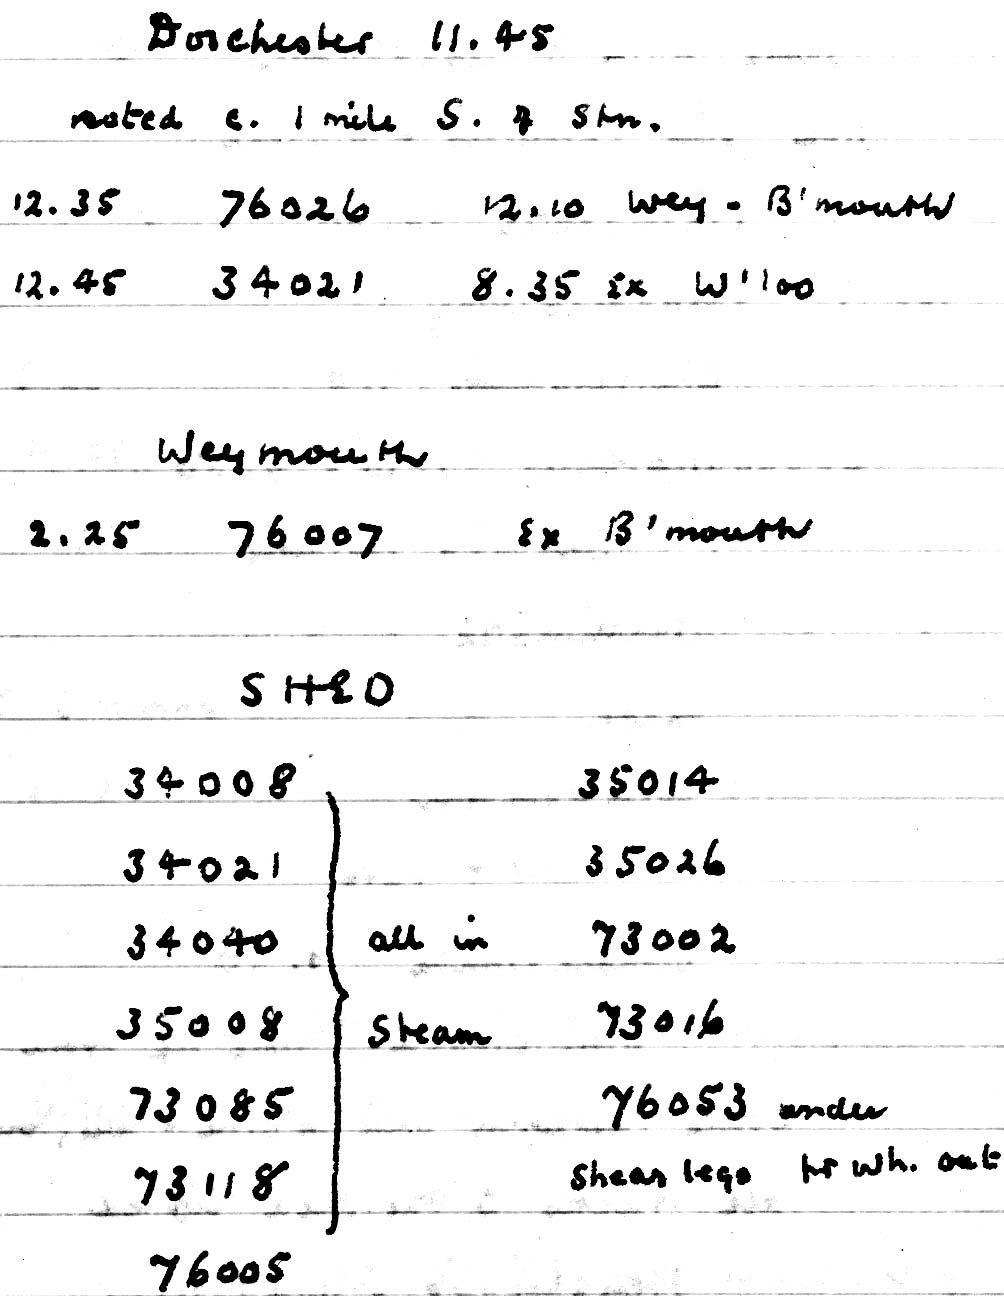 Dorchester 11.45
noted c. 1 mile S. of Stn.
12.35 76026 12.10 Wey - B'mouth
12.45 34021 8.35 Ex W'loo
Weymouth
2.25 76007 Ex B'mouth
SHED
34008 35014
34021 35026
34040 all in 73002
35008 Steam 73016
73085 76053 under
73118 Shear legs tr wh. out
76005